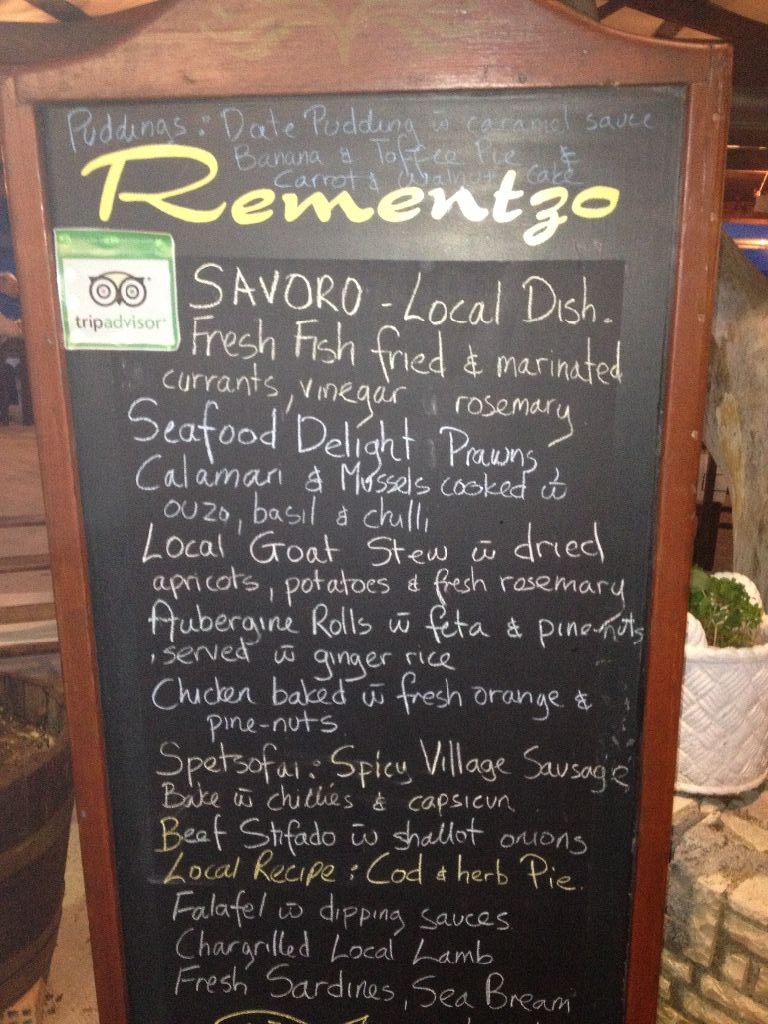 Puddings: Date Pudding w̄ caramel sauce
Banana & Toffee Pie &
Carrot & Walnut cake
Rementzo
tripadvisor
SAVORO - Local Dish.
Fresh Fish fried & marinated
currants, vinegar rosemary
Seafood Delight Prawns,
Calamari & Mussels cooked w̄
ouzo, basil & chilli
Local Goat Stew w̄ dried
apricots, potatoes & fresh rosemary
Aubergine Rolls w̄ feta & pine-nuts
, served w̄ ginger rice
Chicken baked w̄ fresh orange &
pine-nuts
Spetsofai: Spicy Village Sausage
Bake w̄ chillies & capsicum
Beef Stifado w̄ shallot onions
Local Recipe: Cod & herb Pie.
Falafel w̄ dipping sauces
Chargrilled Local Lamb
Fresh Sardines, Sea Bream